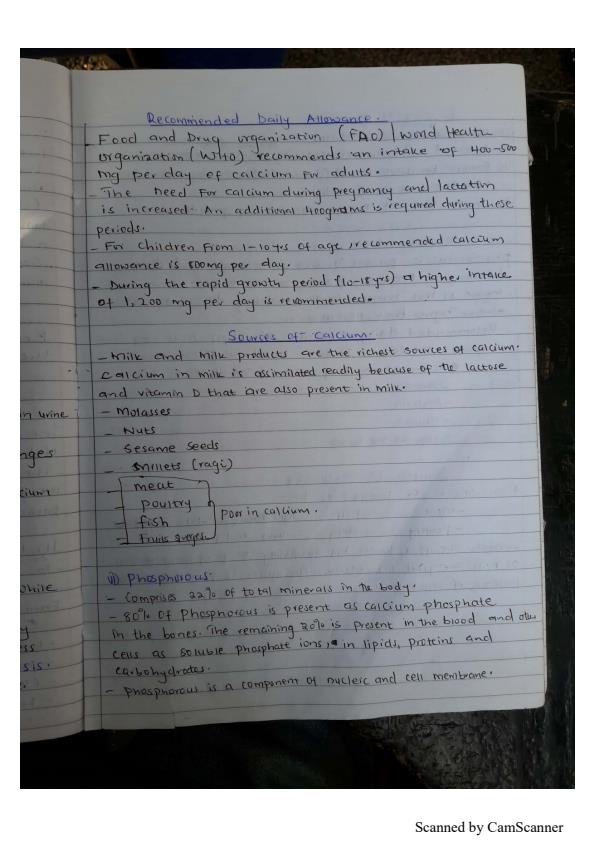 Recommended Daily Allowance.
- Food and Drug organization (FAO) | World Health
organization (WHO) recommends an intake of 400-500
mg per day of calcium for adults.
- The need for calcium during pregnancy and lactation
is increased. An additional 400grams is required during these
periods.
- For children from 1-10yrs of age, recommended calcium
allowance is 500mg per day.
- During the rapid growth period (10-18yrs) a higher intake
of 1,200 mg per day is recommended.
Sources of calcium.
- Milk and milk products are the richest sources of calcium.
calcium in milk is assimilated readily because of the lactose
and vitamin D that are also present in milk.
- Molasses
- Nuts
- Sesame seeds
- Millets (ragi)
- meat
- poultry
- fish
- Fruits
poor in calcium.
ii) Phosphorous.
- Comprises 22% of total minerals in the body.
- 80% of phosphorous is present as calcium phosphate
in the bones. The remaining 20% is present in the blood and other
cells as soluble phosphate ions, in lipids, proteins and
carbohydrates.
- phosphorous is a component of nucleic and cell membrane.
in urine
nges
cium
while
y
ss
sis.
Scanned by CamScanner